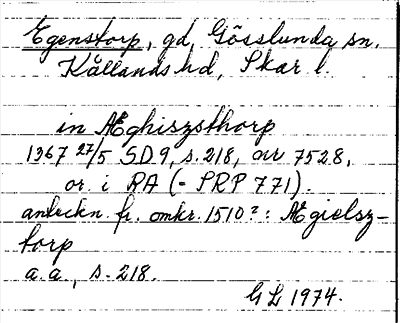 Egenstorp, gd, Gösslunda sn,
Kållands hd, Skar l.
in Æghiszsthorp
1367 27/5 SD 9, s. 218, avr 7528,
or. i RA (= PRP 771).
anteckn. fr. omkr. 1510?: Ægielsz-
torp
a.a., s. 218.
GL 1974.